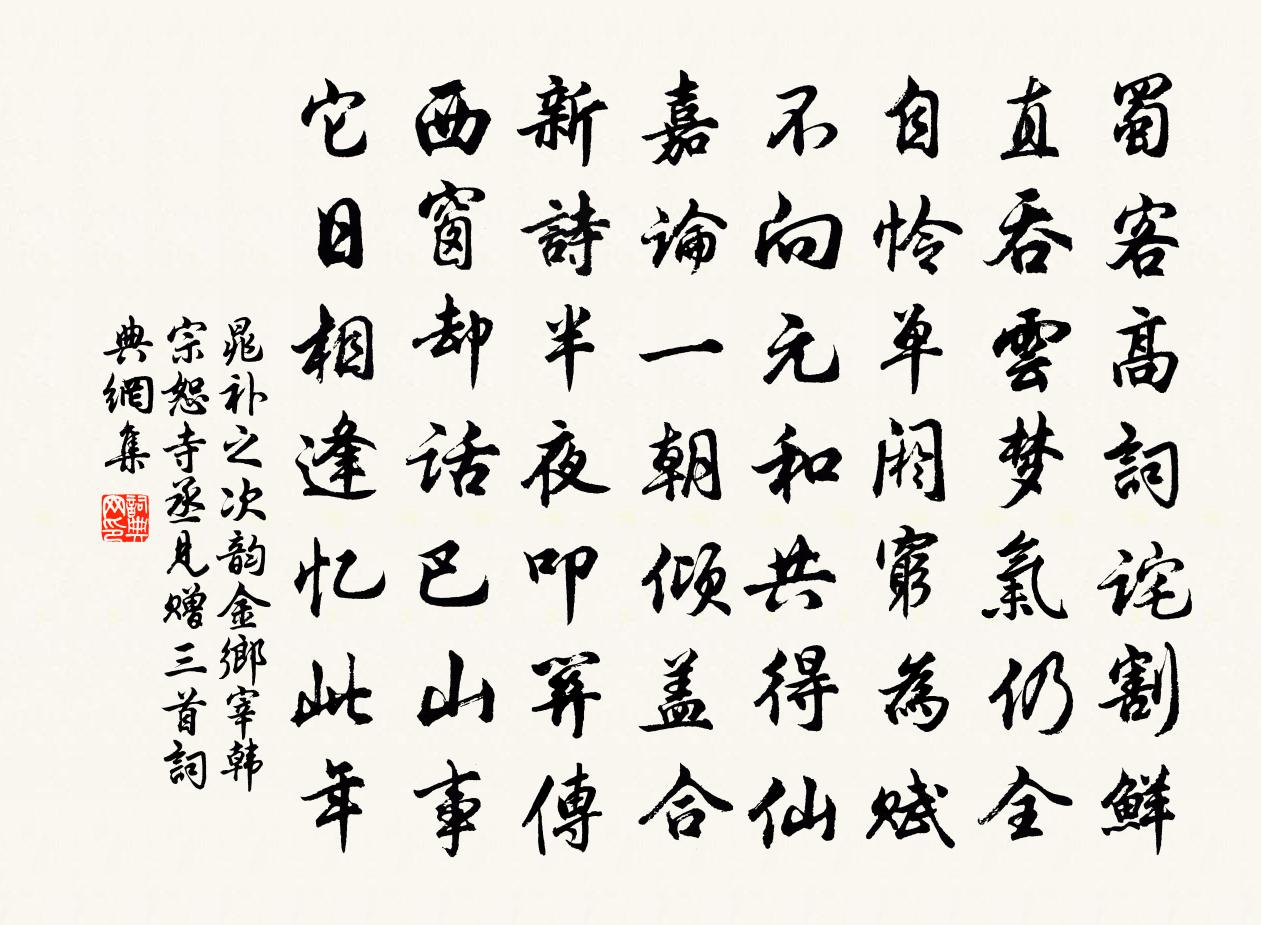 蜀客高詞詫割鮮
直吞雲梦氣仍全
自怜单阏窮為賦
不向元和共得仙
嘉論一朝倾盖合
新詩半夜叩關傳
西窗却話巴山事
它日相逢忆此年
晁补之次韵金鄉宰韩
宗恕寺丞見赠三首詞
典網集
詞典
网印